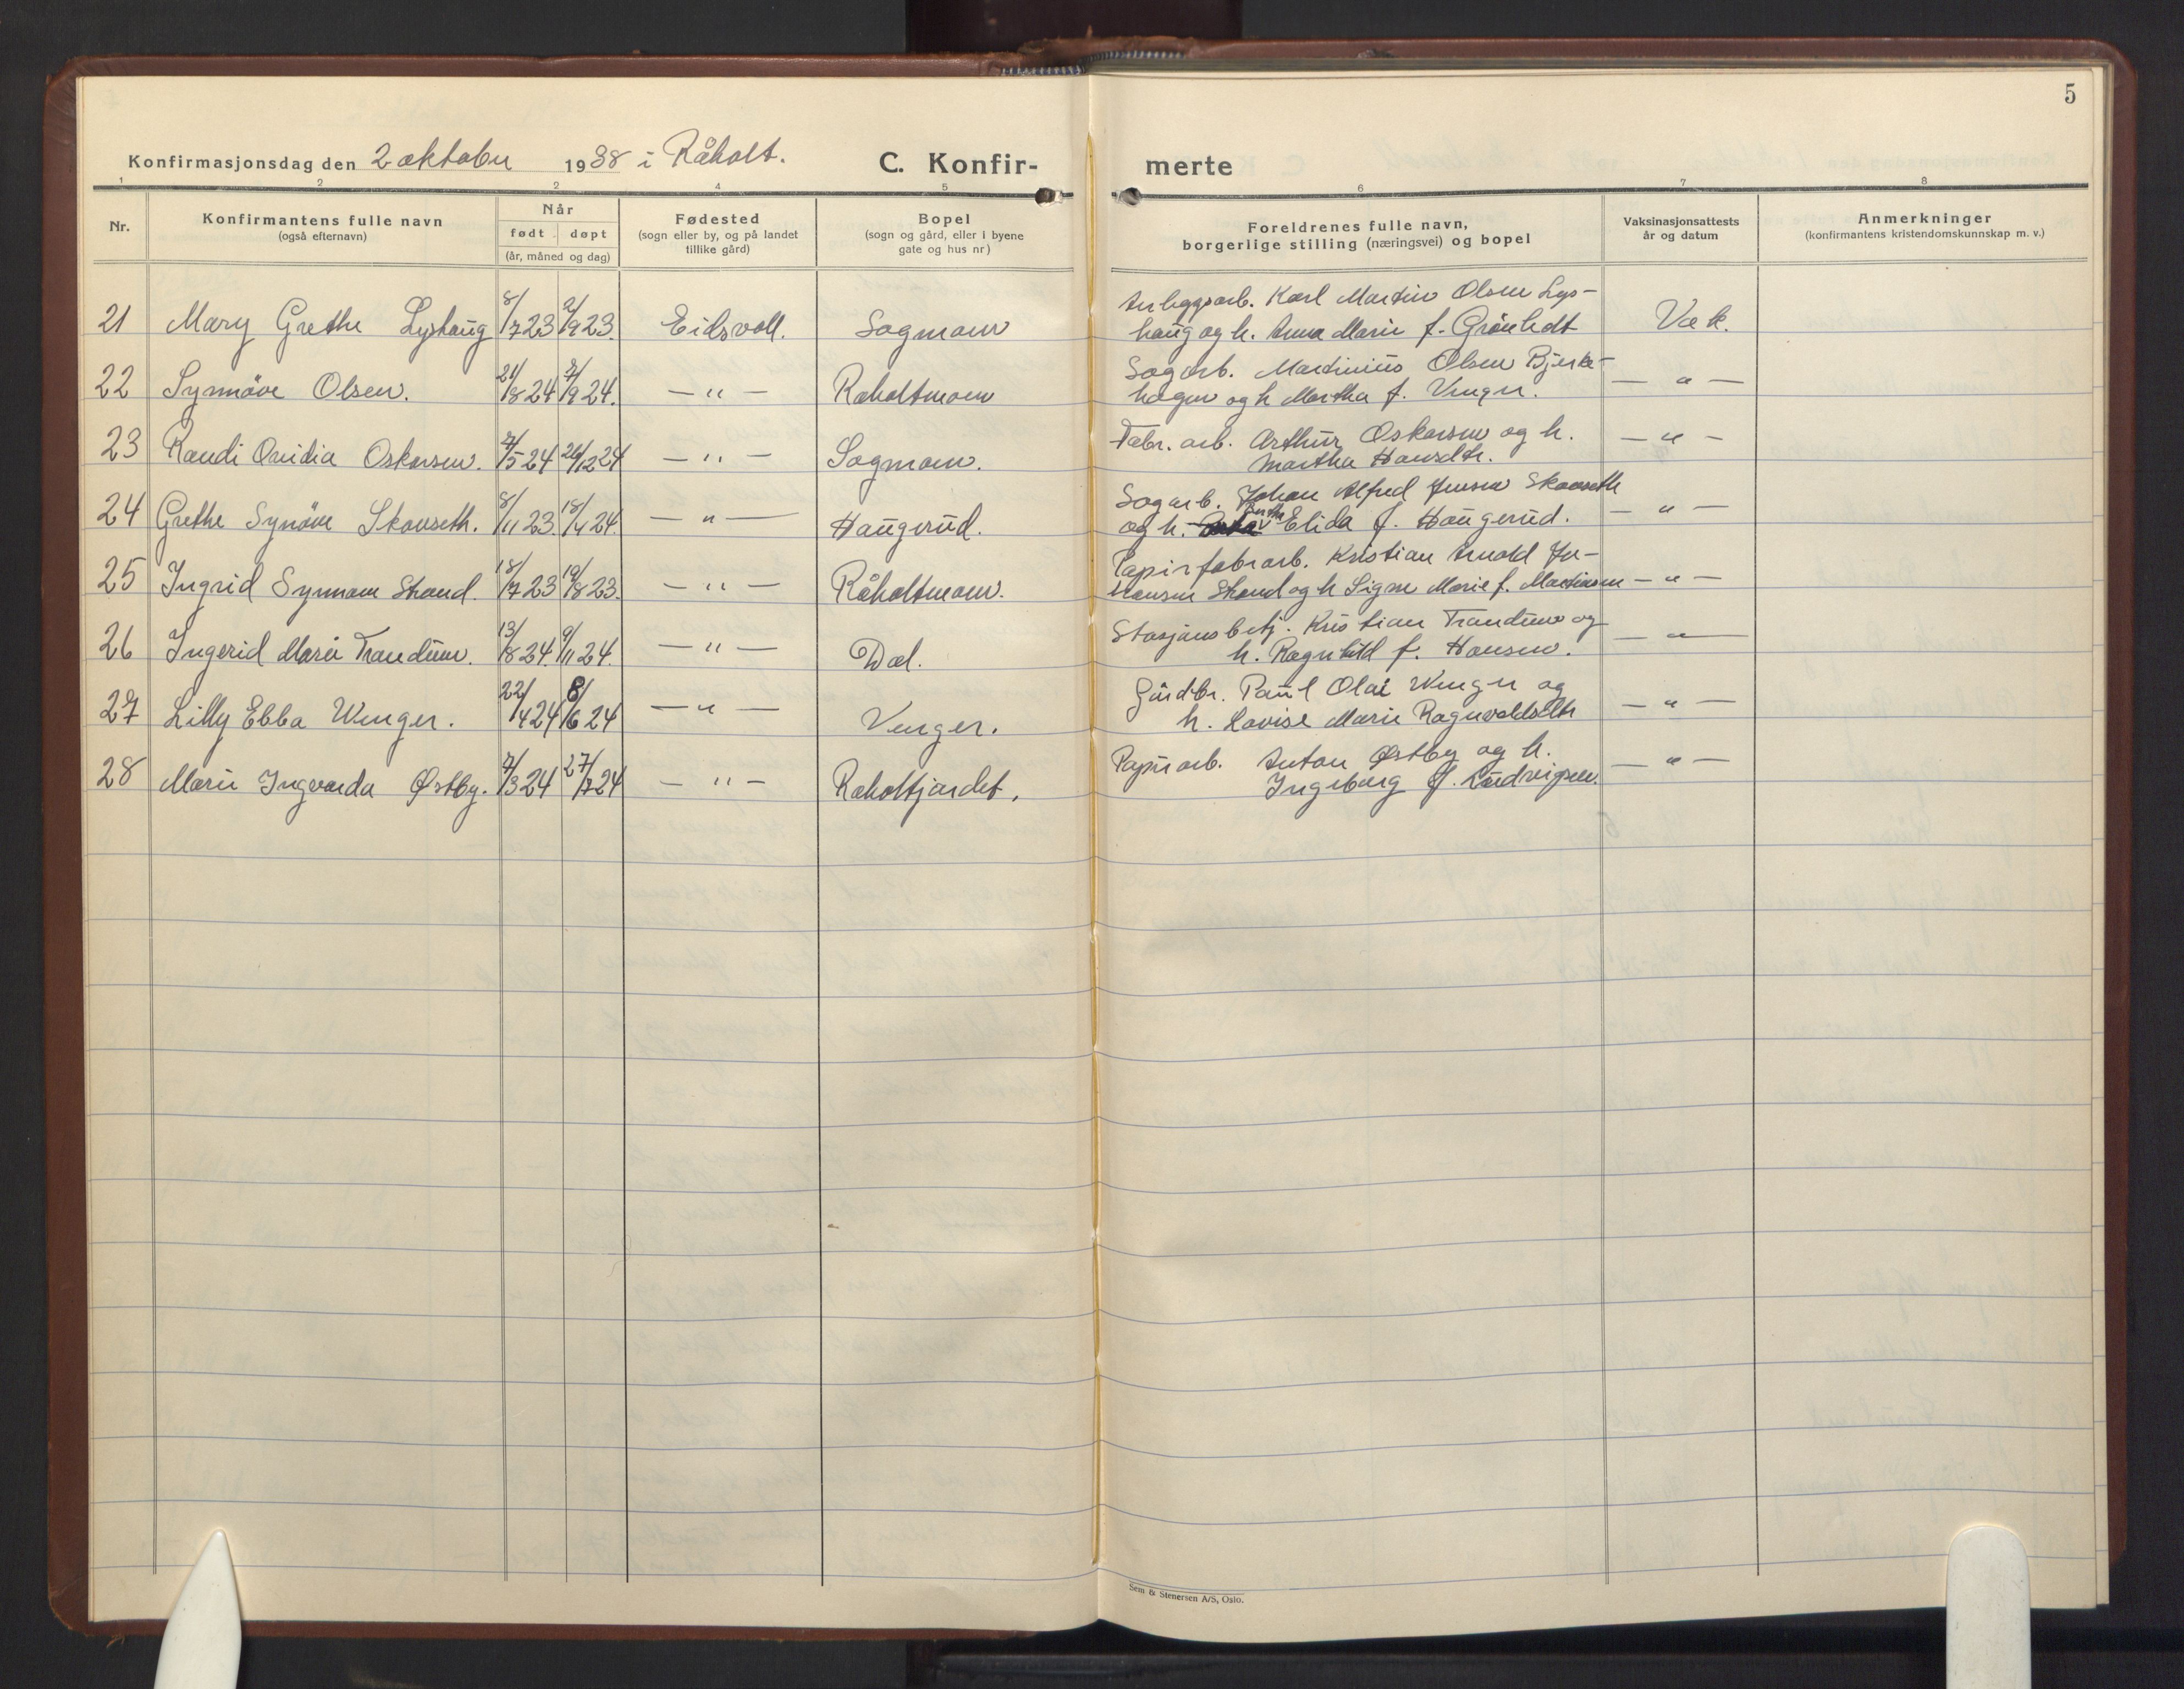 5
Konfirmasjonsdag den 2 oktober 1938 i Råholt. C. Konfir- merte
1 2 2 4 5 6 7 8
Nr. Konfirmantens fulle navn (også efternavn) Når født døpt (år, måned og dag) Fødested (sogn eller by, og på landet tillike gård) Bopel (sogn og gård, eller i byene gate og hus nr) Foreldrenes fulle navn, borgerlige stilling (næringsvei) og bopel Vaksinasjonsattests år og datum Anmerkninger (konfirmantens kristendomskunnskap m. v.)
Anleggsarb. Karl Martin Olsen Lys-
21 Mary Grethe Lyshaug 8/7 23 2/9 23. Eidsvoll. Sagmoen haug og h. Anna Marie f. Grönhedt Vak.
Sagarb. Martinius Olsen Bjerke-
22 Synnöve Olsen. 21/8 24 7/9 24. — " — Raholtmoen hagen og h Martha f. Venger. — " —
Fabr. arb. Arthur Oskarsen og h.
23 Randi Ovidia Oskarsen. 7/5 24 26/12 24 — " — Sagmoen. Martha Hansdtr. — " —
Sagarb. Johan Alfred Jensen Skanseth
24 Grethe Synöve Skanseth. 8/11 23. 18/4 24. — " — Haugerud. og h. Berthe Elida f. Haugerud. — " —
Papirfabrarb. Kristian Arnold Jo-
25 Ingrid Synnøve Strand. 18/7 23 19/8 23. — " — Råholtmoen. hansen Strand og h Signe Marie f. Martinsen — " —
Stasjonsbetj. Kristian Trandum og
26 Ingerid Marie Trandum. 13/8 24. 9/11 24. — " — Dal. h. Ragnhild f. Hansen. — " —
Gårdbr. Paul Olai Wenger og
27 Lilly Ebba Wenger. 22/4 24 8/6 24 — " — Venger. h. Lovise Marie Ragnvaldsdtr — " —
Papirarb. Anton Østby og h.
28 Marie Ingvarda Østby. 7/3 24 27/7 24 — " — Raholtjordet. Ingeborg f. Ludvigsen. — " —
Sem & Stenersen A/S, Oslo.